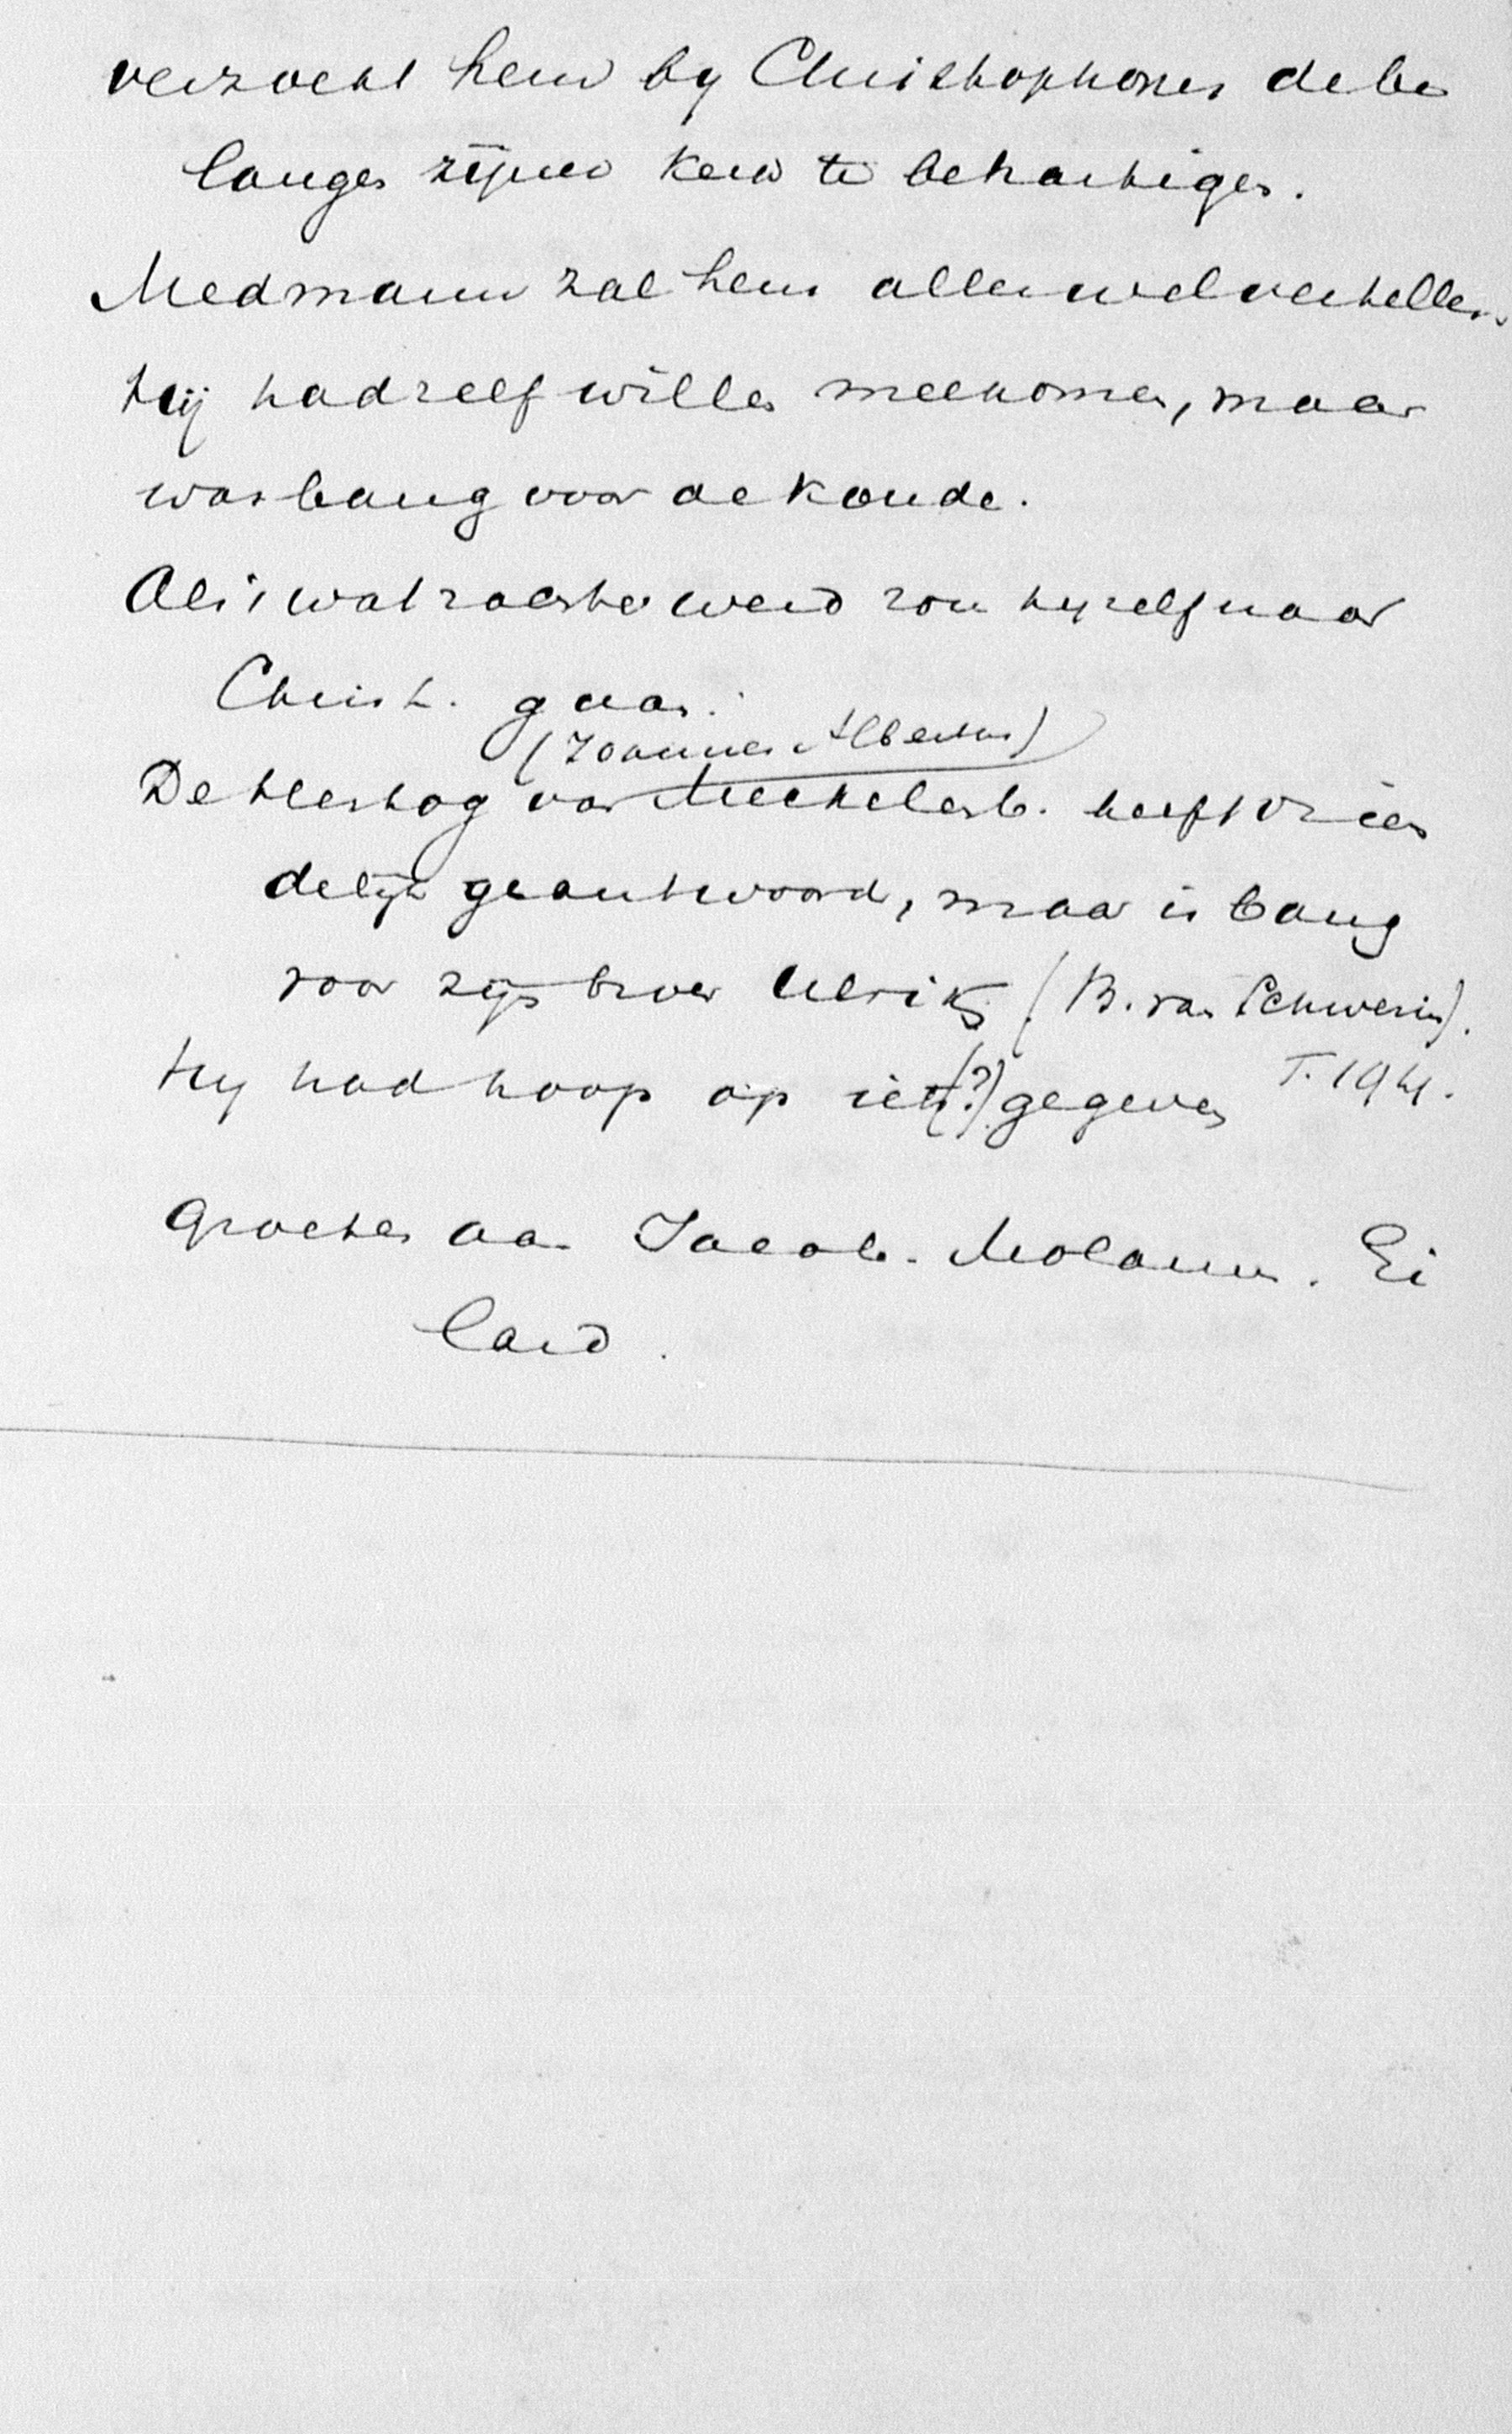 verzocht hem by Christophorus de be
langen zijner kerk te behartigen.
Medmann zal hem alles wel vertellen.
Hij had zelf willen meekomen, maar
was bang voor de koude.
Als 't wat zachter werd zou hy zelf naar
Christ. gaan.
(Joannes Albertus)
De Hertog van Meckelenb. heeft vrien
delijk geantwoord, maar is bang
voor zijn broer Ulrik (B. van Schwerin).
Hy had hoop op iets(?) gegeven T. 194.
Groeten aan Jacob. Molanus. Ei
land.